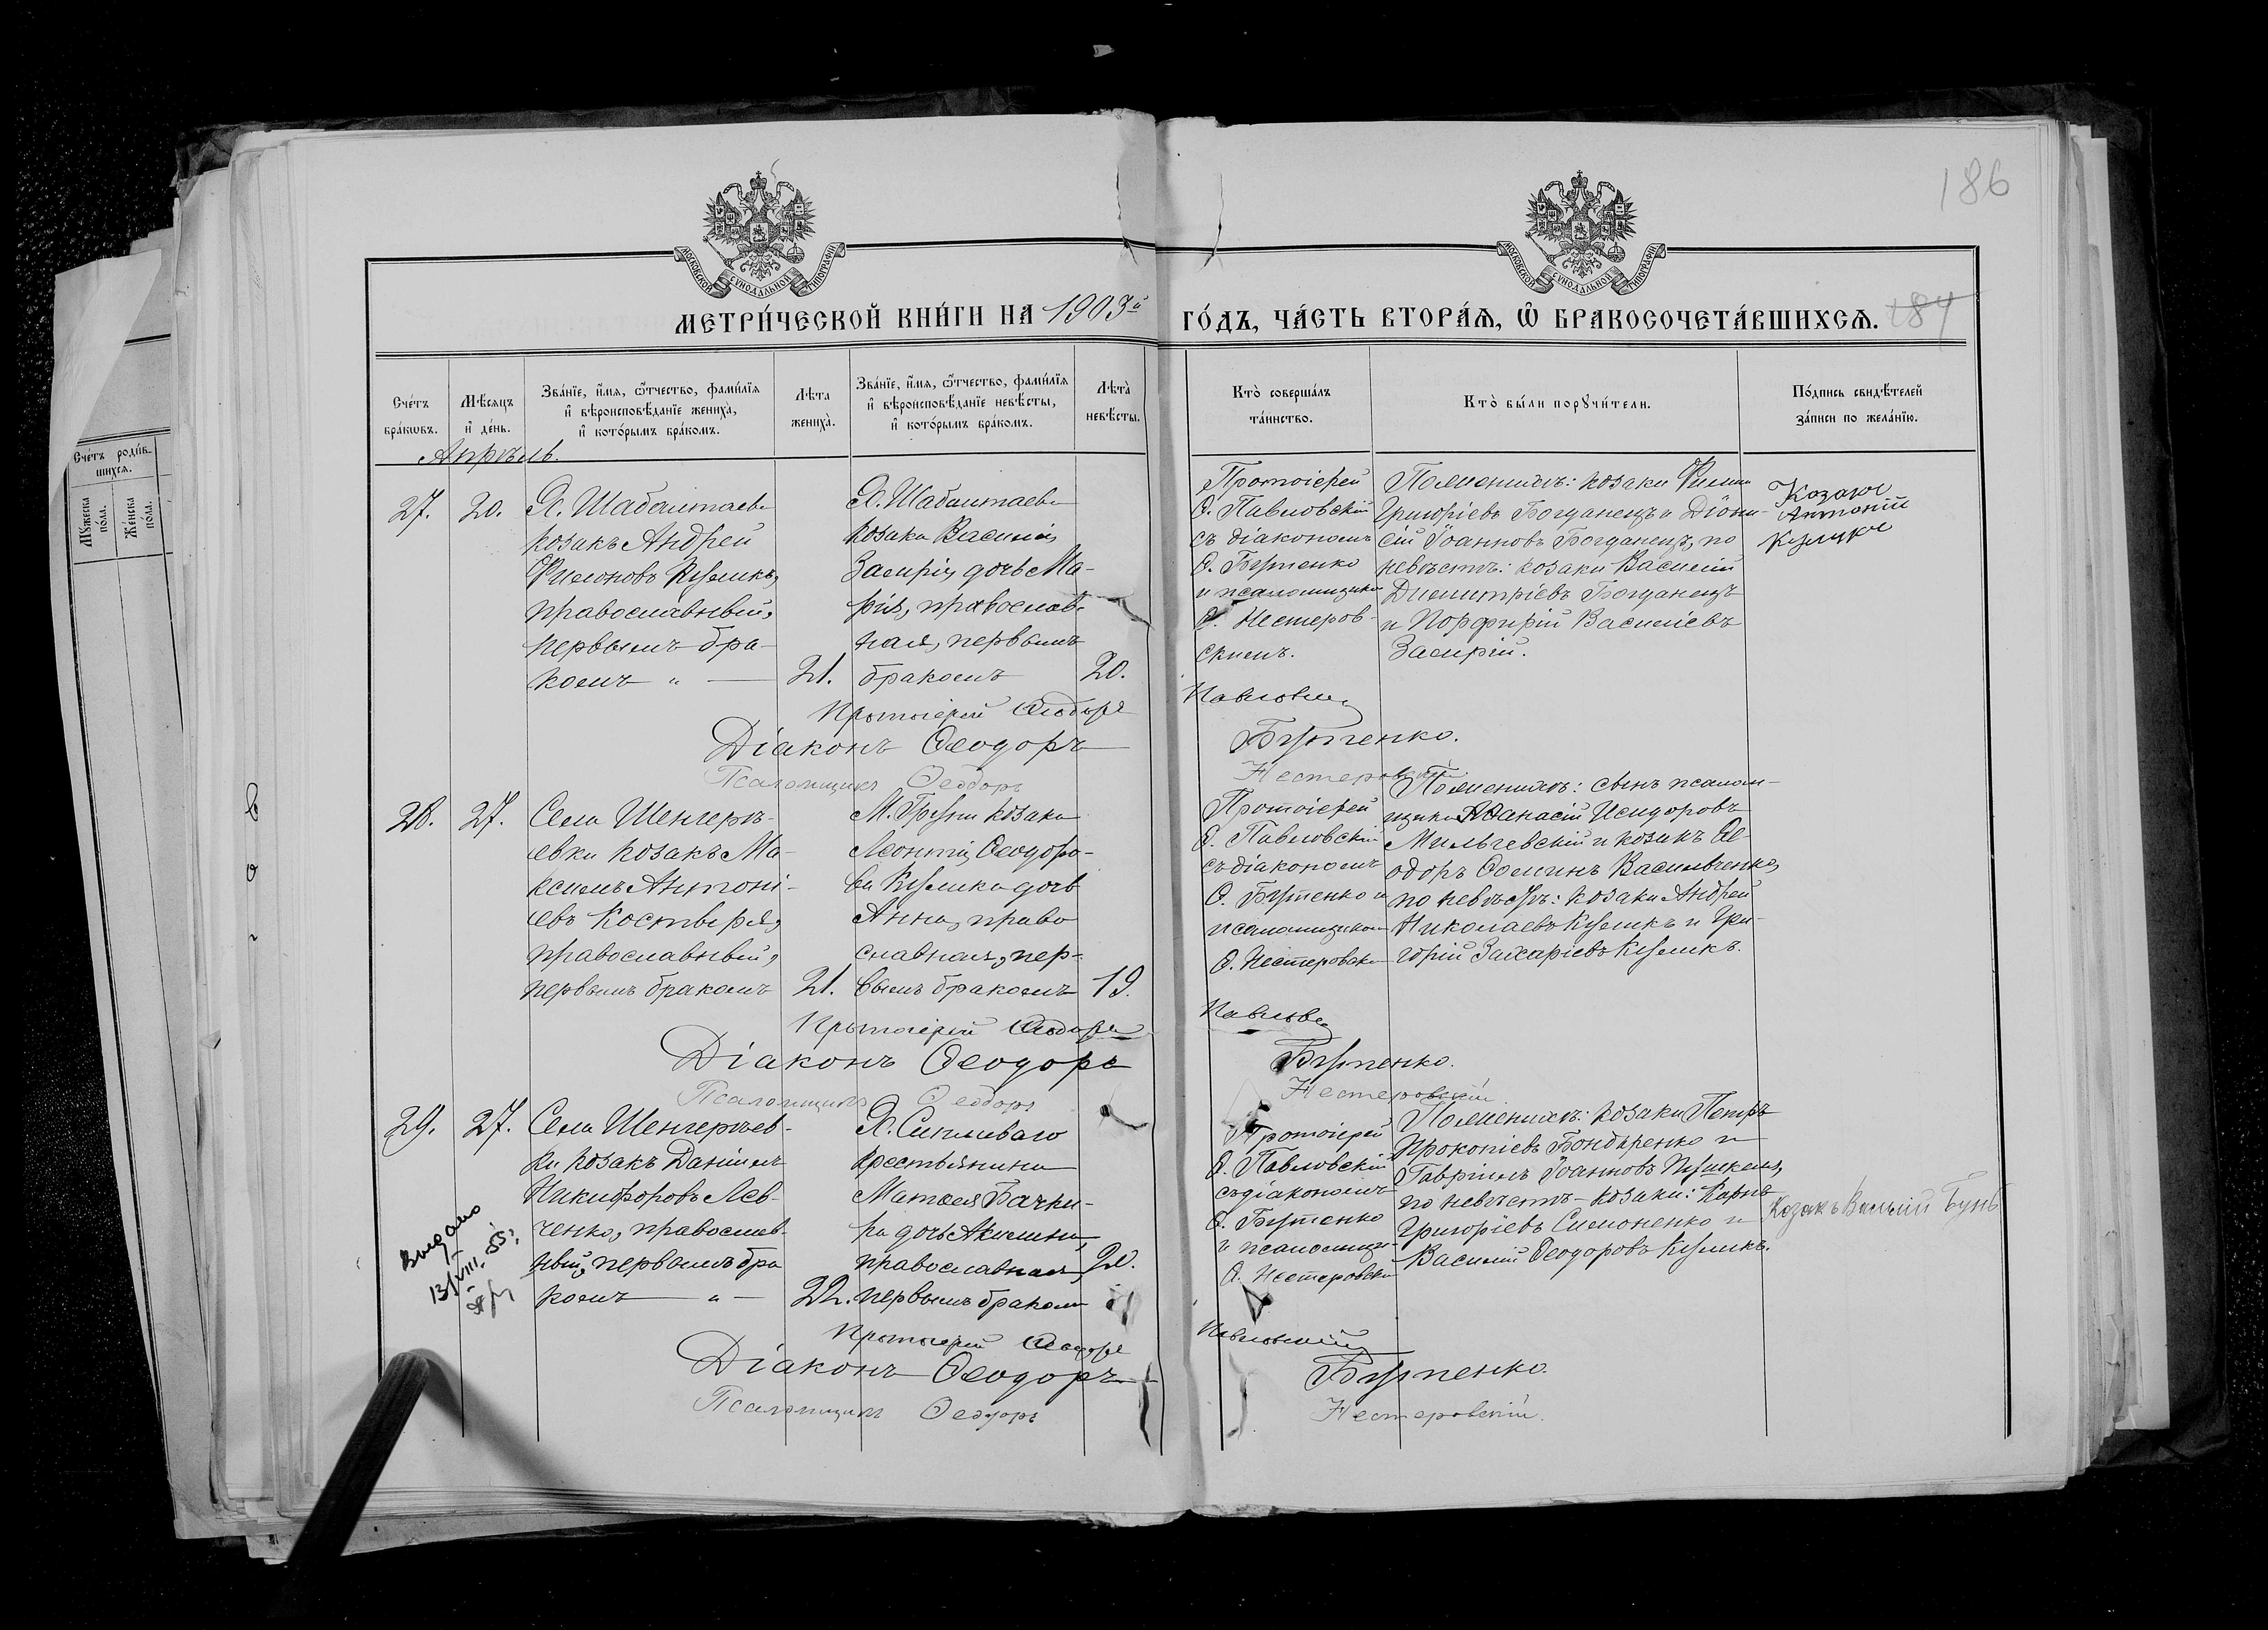 186
МОСКОВСКОЙ СѴНОДАЛЬНОЙ ТИПОГРАФІИ
МОСКОВСКОЙ СѴНОДАЛЬНОЙ ТИПОГРАФІИ
МЕТРИ́ЧЕСКОЙ КНИ́ГИ НА 1903й ГО́ДЪ, ЧА́СТЬ ВТОРА́Ѧ, Ѽ БРАКОСОЧЕТА́ВШИХСѦ. 184
Сче́тъ бра́кѡвъ.
Мѣ́сяцъ и҆ де́нь.
Зва́нїе, и҆́мѧ, ѻ҆́тчество, фами́лїѧ
и҆ вѣроисповѣ́данїе жениха̀,
и҆ кото́рымъ бра́комъ.
Лѣ́та жениха̀.
Зва́нїе, и҆́мѧ, ѻ҆́тчество, фами́лїѧ
и҆ вѣроисповѣ́данїе невѣ́сты,
и҆ кото́рымъ бра́комъ.
Лѣта̀ невѣ́сты.
Кто̀ соверша́лъ
та́инство.
Кто̀ бы́ли порꙋчи́тели.
По́дпись свидѣ́телей
за́писи по жела́нїю.
Сче́тъ роди́в-
шихсѧ.
Мꙋ́жеска по́ла.
Же́нска по́ла.
Апрѣль.
27. 20.
Х. Шабалтаев
козакъ Андрей
Филоновъ Куликъ,
православный,
первымъ бра-
комъ " — 21.
Х. Шабалтаев
козака Василія
Замрія дочь Ма-
рія, православ-
ная, первымъ
бракомъ 20.
Протоіерей
Ѳ. Павловскій
съ діакономъ
Ѳ. Бутенко
и псаломщикомъ
Ѳ. Нестеров-
скимъ.
По женихѣ: козаки Филипп
Григоріевъ Богданецъ и Діони-
сій Іоанновъ Богданецъ, по
невѣстѣ: козаки Василій
Димитріевъ Богданецъ
и Порфирій Василіевъ
Замрій.
Козакъ
Антоній
Протоіерей Ѳеодоръ Павловскій
Діаконъ Ѳеодоръ Бутенко.
Псаломщикъ Ѳеодоръ Нестеровскій
28. 27.
Села Шенгерѣ-
евки козакъ Ма-
ксимъ Антоні-
евъ Костыря,
православный,
первымъ бракомъ 21.
М. Груни козака
Леонтія Ѳеодоро-
ва Кулика дочь
Анна, право
славная, пер-
вымъ бракомъ 19.
Протоіерей
Ѳ. Павловскій
съ діакономъ
Ѳ. Бутенко и
псаломщикомъ
Ѳ. Нестеровски
По женихѣ: сынъ псалом-
щика Аѳанасій Исидоровъ
Мильгевскій и козакъ Ѳе-
одоръ Ѳоминъ Васильченко,
по невѣстѣ: козаки Андрей
Николаевъ Куликъ и Гри-
горій Захаріевъ Куликъ.
Протоіерей Ѳеодоръ Павловскій
Діаконъ Ѳеодоръ Бутенко.
Псаломщикъ Ѳеодоръ Нестеровскій
29. 27.
Села Шенгерѣев-
ки козакъ Даніилъ
Никифоровъ Лев-
ченко, православ-
ный, первымъ бра
комъ — " — 22.
Х. Сипливаго
крестьянина
Матѳея Бачки-
ра дочь Акилина,
православная, 20.
первымъ бракомъ
Протоіерей
Ѳ. Павловскій
съ діакономъ
Ѳ. Бутенко
и псаломщи-
Ѳ. Нестеровски
По женихѣ: козаки Петръ
Прокопіевъ Бондаренко и
Гавріилъ Іоанновъ
по невѣстѣ – козаки: Карпъ
Григоріевъ Симоненко и
Василій Ѳеодоровъ Куликъ.
Козакъ Василій Бунь
Выдано
13/VIII.55г.
Протоіерей Ѳеодоръ Павловскій
Діаконъ Ѳеодоръ Бутенко.
Псаломщикъ Ѳеодоръ Нестеровскій.